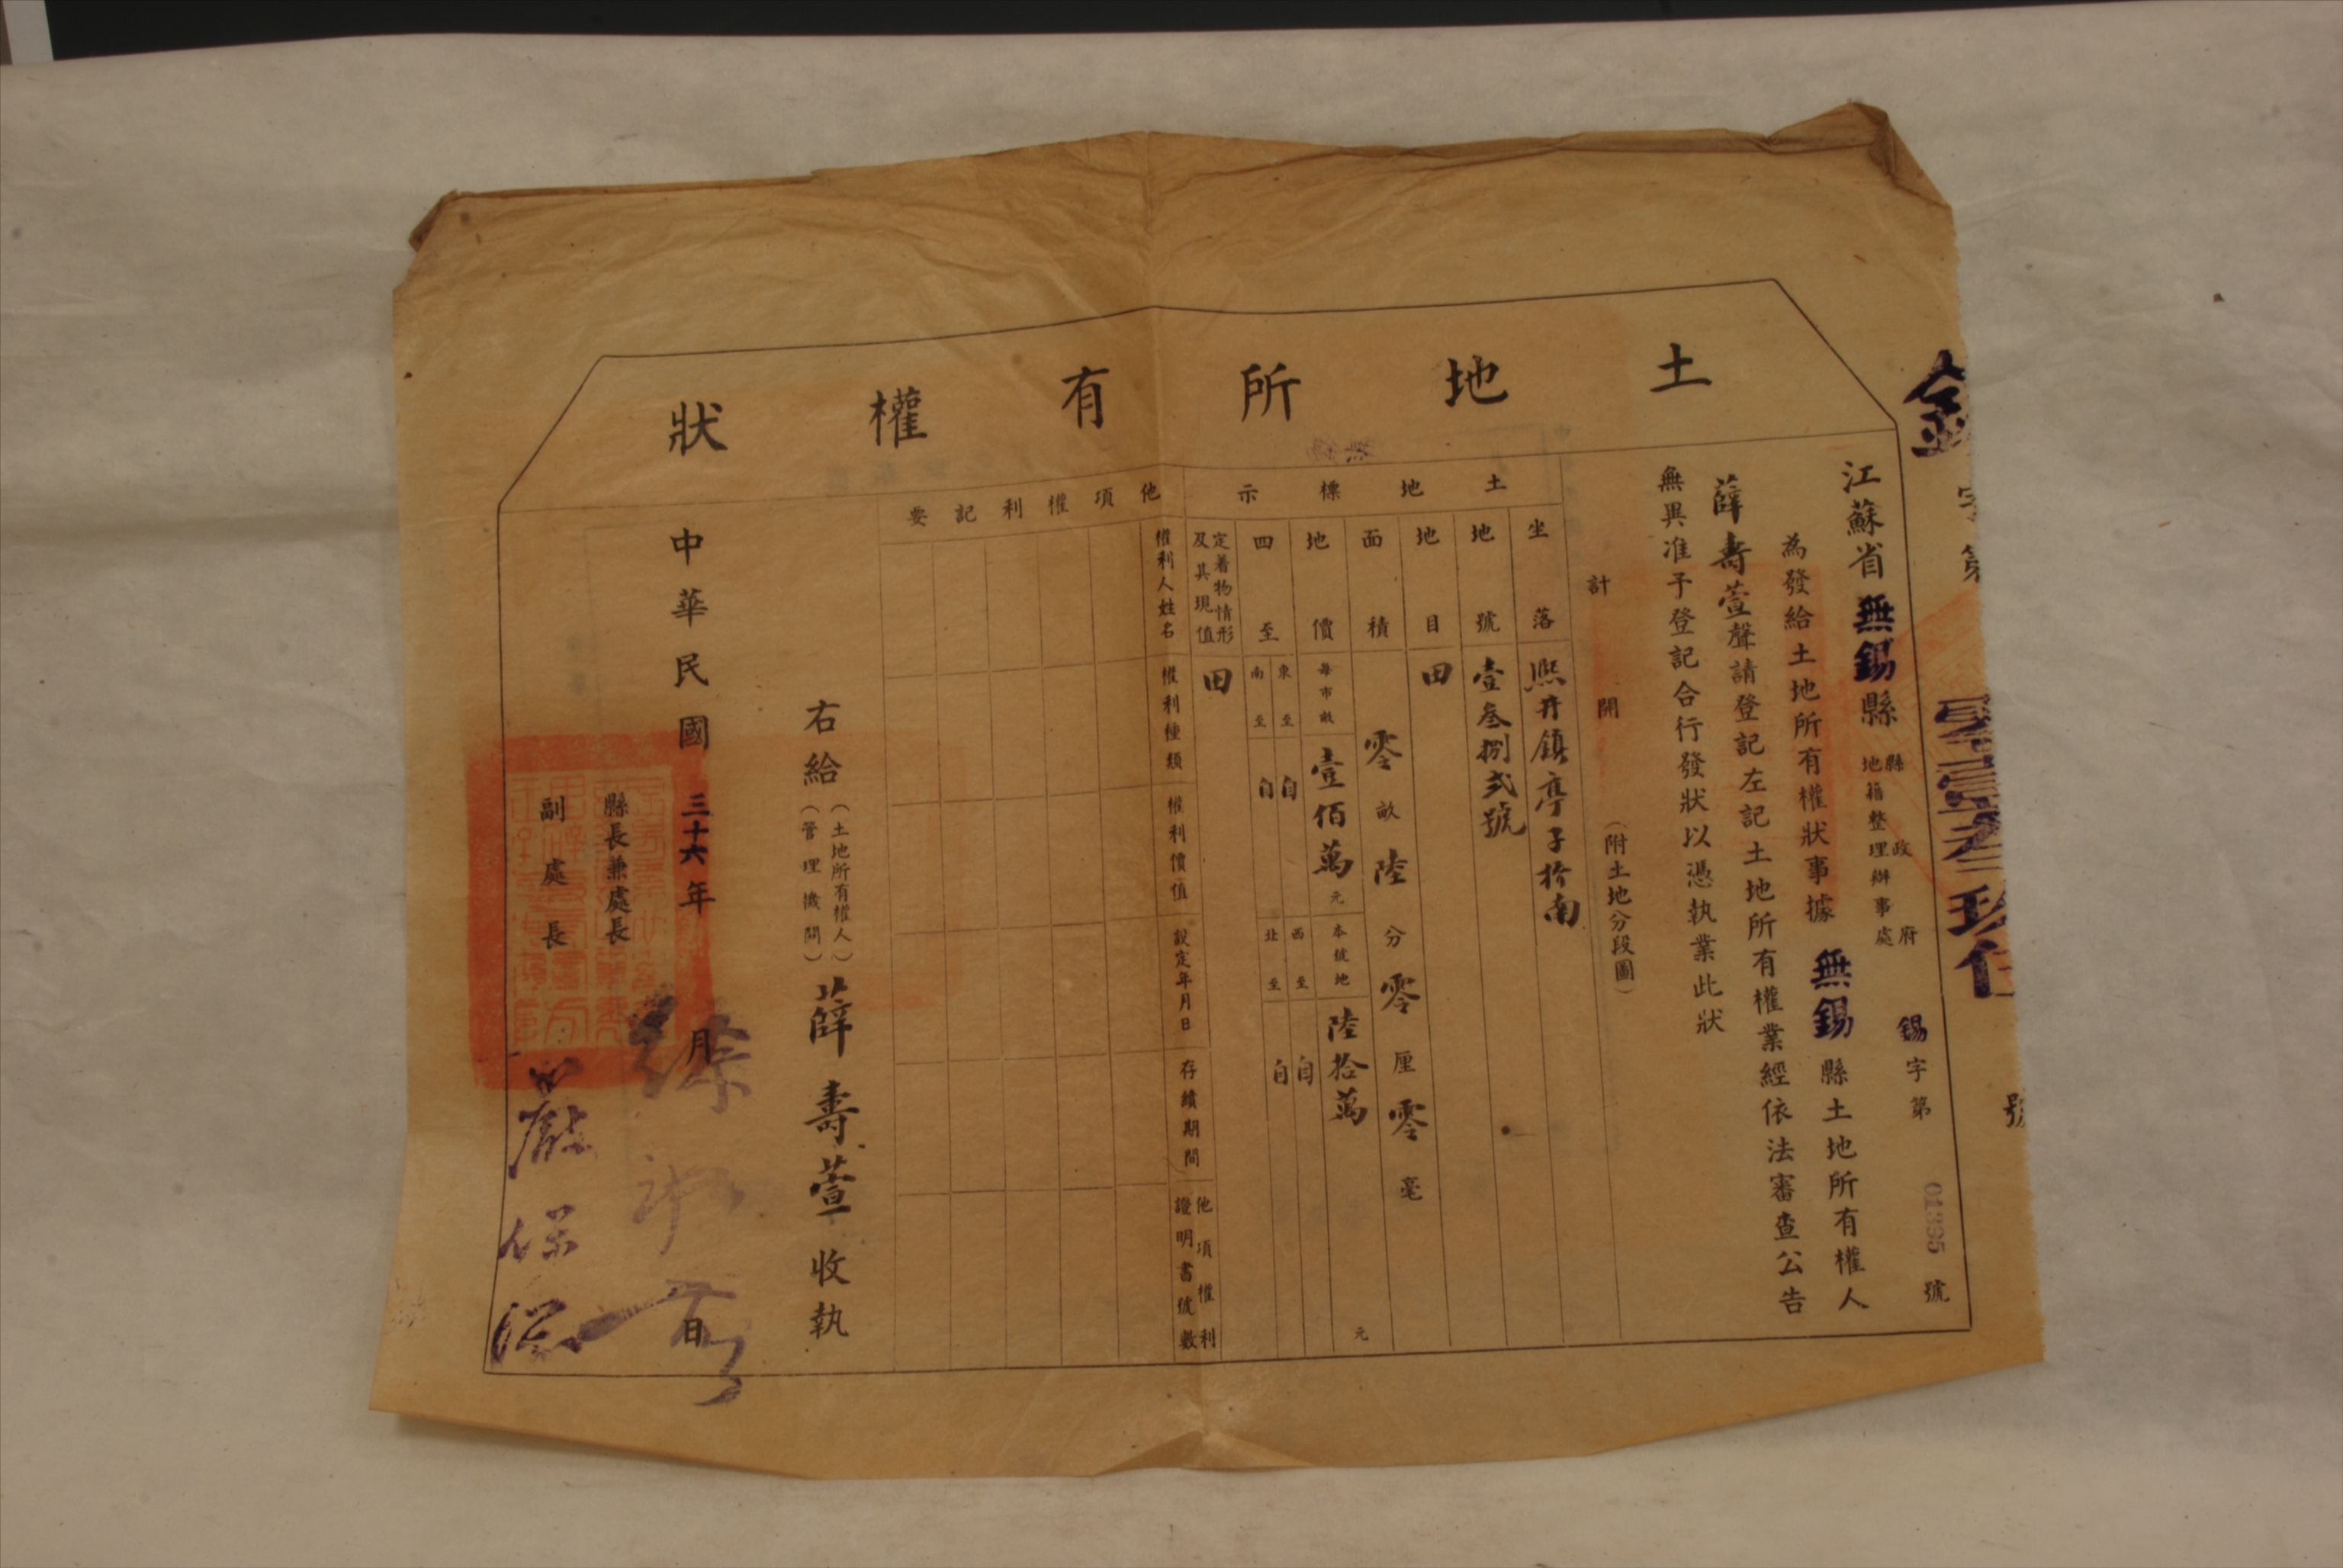 土地所有權狀
江蘇省無錫縣縣政府地籍整理辦事處 錫字第01395號
為發給土地所有權狀事據無錫縣土地所有權人
薛壽萱聲請登記左記土地所有權業經依法審查公告
無異准予登記合行發狀以憑執業此狀
計開(附土地分段圖)
土地標示
坐落 熙井鎮亭子於南
地號 壹叁捌貳號
地目 田
面積 零畝陸分零厘零毫
地價 每市畝 壹佰萬元 本號地 陸拾萬元
四至 東至自 西至自
南至自 北至自
定着物情形及其現值 田
他項權利記要
權利人姓名 權利種類 權利價值 設定年月日 存續期間 他項權利證明書號數
右給(土地所有權人)(管理機關)薛壽萱收執
中華民國三十六年 月 日
縣長兼處長 徐
副處長 嚴保滋
字第零壹叁玖伍號